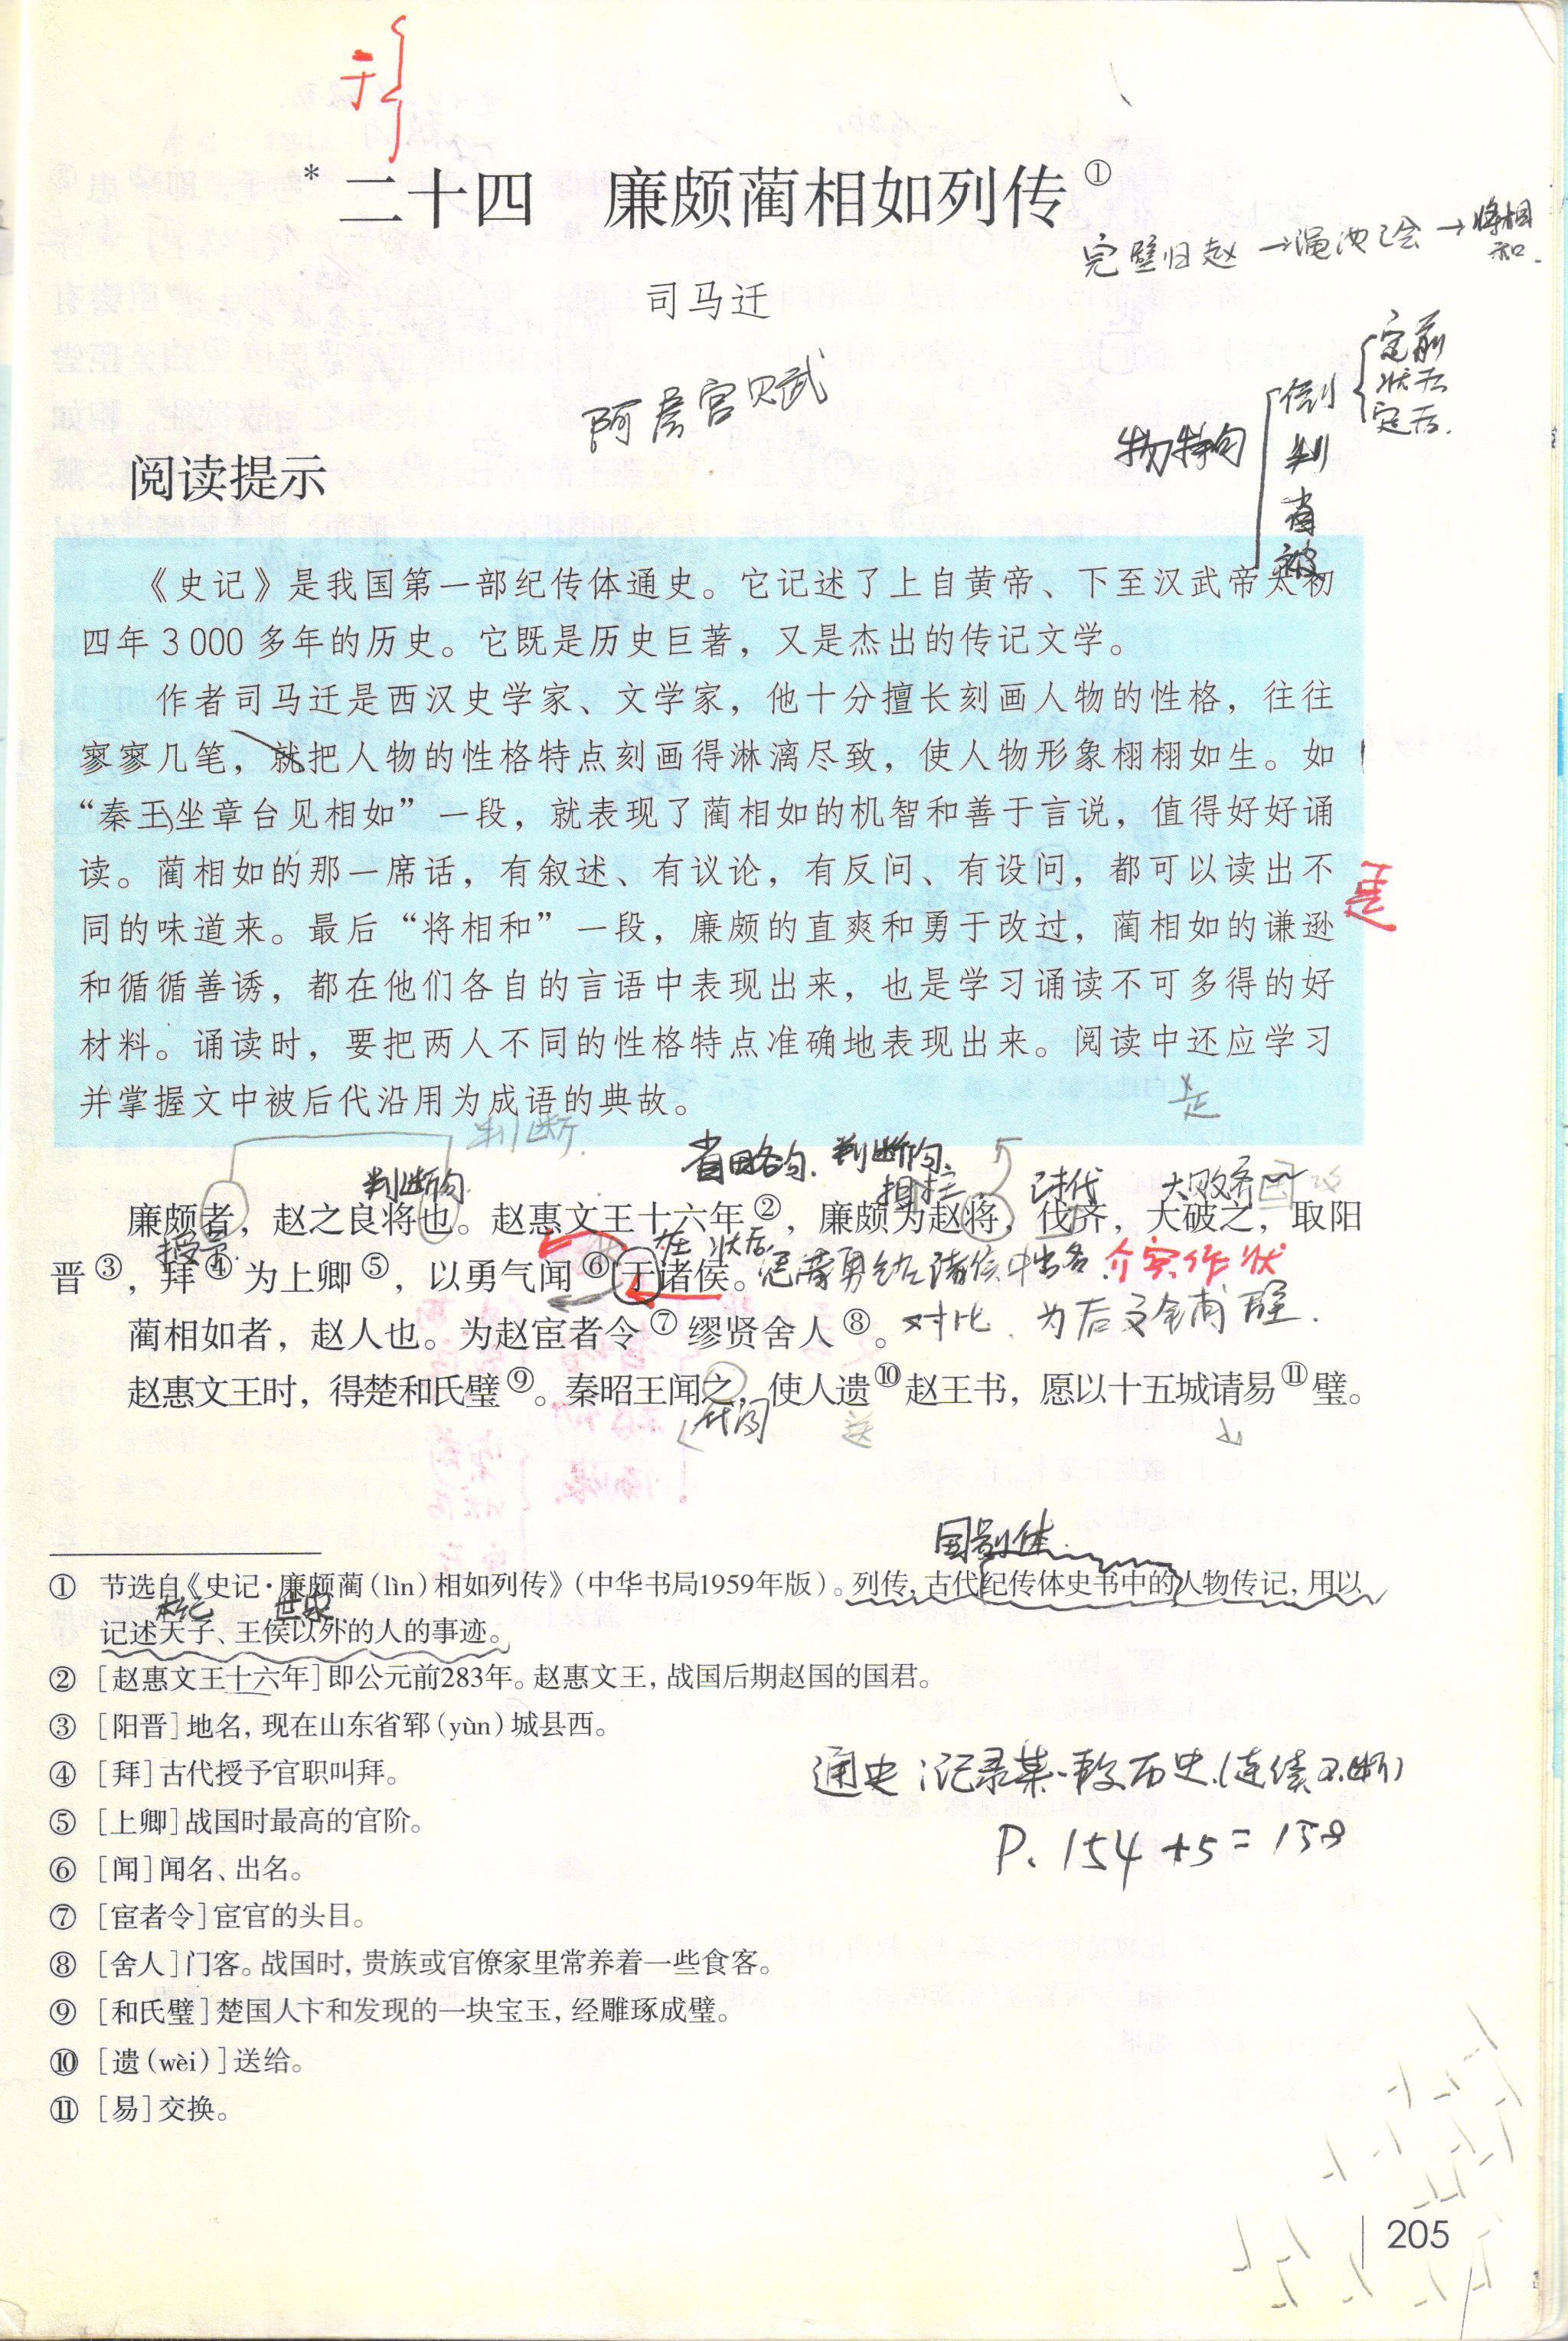 于
*二十四 廉颇蔺相如列传①
完璧归赵→渑池之会→将相和.
司马迁
阿房宫赋
定前
状后
定后.
特句
倒
判
省
被
阅读提示
《史记》是我国第一部纪传体通史。它记述了上自黄帝、下至汉武帝太初
四年3000多年的历史。它既是历史巨著，又是杰出的传记文学。
作者司马迁是西汉史学家、文学家，他十分擅长刻画人物的性格，往往
寥寥几笔，就把人物的性格特点刻画得淋漓尽致，使人物形象栩栩如生。如
“秦王坐章台见相如”一段，就表现了蔺相如的机智和善于言说，值得好好诵
读。蔺相如的那一席话，有叙述、有议论，有反问、有设问，都可以读出不
同的味道来。最后“将相和”一段，廉颇的直爽和勇于改过，蔺相如的谦逊
和循循善诱，都在他们各自的言语中表现出来，也是学习诵读不可多得的好
材料。诵读时，要把两人不同的性格特点准确地表现出来。阅读中还应学习
并掌握文中被后代沿用为成语的典故。
是
是
判断.
判断句.
省略句.
判断句.
担任
讨伐
大败齐国
廉颇者，赵之良将也。赵惠文王十六年②，廉颇为赵将，伐齐，大破之，取阳
授予.
在
状后.
晋③，拜④为上卿⑤，以勇气闻⑥于诸侯。
介宾作状
蔺相如者，赵人也。为赵宦者令⑦缪贤舍人⑧。
对比.为后文铺
赵惠文王时，得楚和氏璧⑨。秦昭王闻之，使人遗⑩赵王书，愿以十五城请易⑪璧。
送
国别体.
①节选自《史记·廉颇蔺（lìn）相如列传》（中华书局1959年版）。列传，古代纪传体史书中的人物传记，用以
本纪
世家
记述天子、王侯以外的人的事迹。
②［赵惠文王十六年］即公元前283年。赵惠文王，战国后期赵国的国君。
③［阳晋］地名，现在山东省郓（yùn）城县西。
④［拜］古代授予官职叫拜。
⑤［上卿］战国时最高的官阶。
⑥［闻］闻名、出名。
⑦［宦者令］宦官的头目。
⑧［舍人］门客。战国时，贵族或官僚家里常养着一些食客。
⑨［和氏璧］楚国人卞和发现的一块宝玉，经雕琢成璧。
⑩［遗（wèi）］送给。
⑪［易］交换。
通史：记录某一段历史.(连续不断)
P.154+5=158
205